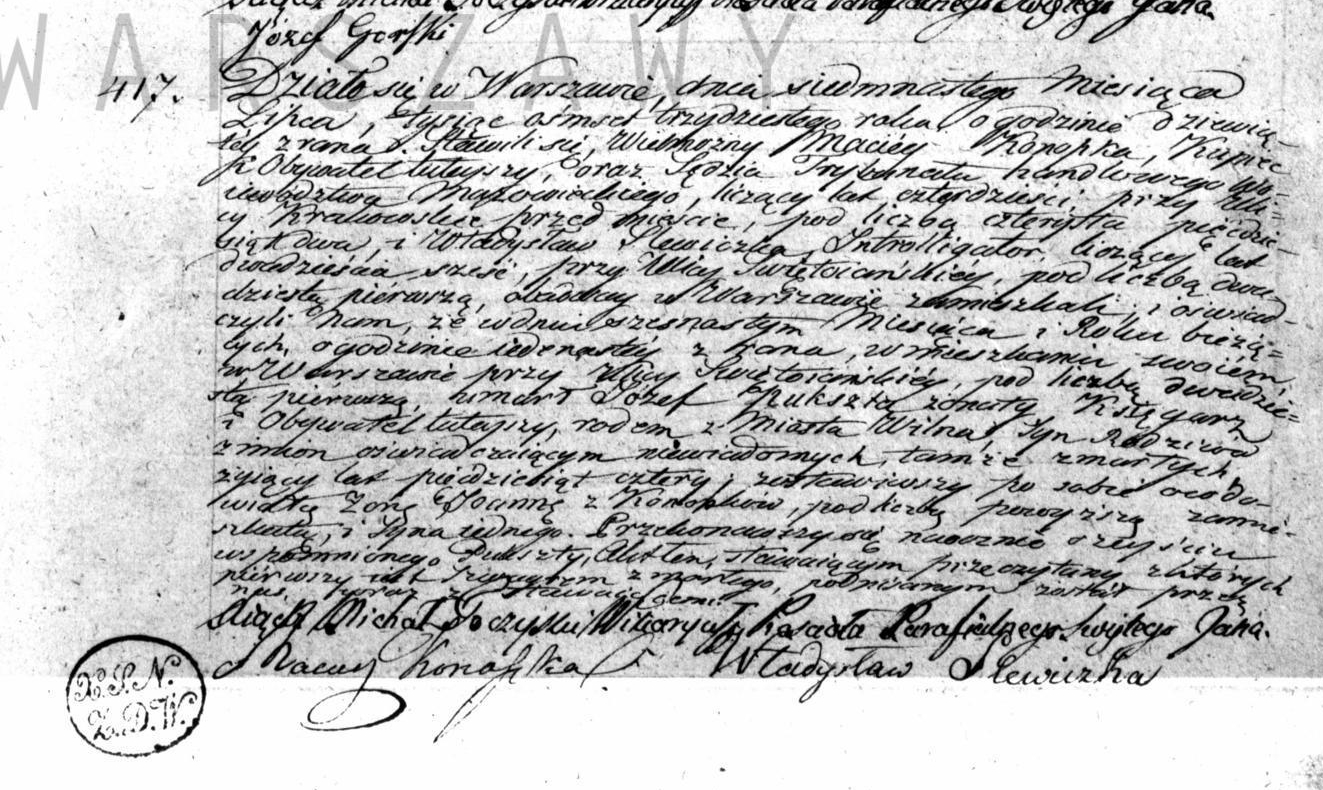 Xiądz Michał Wikaryusz Kościoła Parafialnego Swiętego Jana.
Józef Gorski
WARSZAWY
417. Działo się w Warszawie, dnia siedmnastego Miesiąca
Lipca, tysiąc ośmset trzydziestego roku, o godzinie dziewią-
téy z rana. Stawili się, Wielmożny Maciéy Konopka, Kupiec
i Obywatel tuteyszy, oraz Sędzia Trybunału handlowego Wo-
iewództwa Mazowieckiego, liczący lat czterdzieści, przy Uli-
cy Krakowskie przedmieście, pod liczbą czterysta pięćdzie-
siąt dwa, i Władysław Slewiczka, Introlligator, liczący lat
dwadzieścia sześć, przy Ulicy Swiętoiańskiéy, pod liczbą dwu-
dziestą piérwszą, obadway w Warszawie zamieszkali, i oświad-
czyli Nam, że w dniu szesnastym Miesiąca i Roku bieżą-
cych, o godzinie iedenastéy z rana, w mieszkaniu swoiém,
w Warszawie przy Ulicy Swiętoiańskiéy, pod liczbą dwudzie-
stą piérwszą, umarł Józef Pukszta, żonaty, Księgarz
i Obywatel tuteyszy, rodem z Miasta Wilna, Syn Rodziców
z imion oświadczaiącym niewiadomych, tamże zmarłych,
żyiący lat pięćdziesiąt cztery; zostawiwszy po sobie owdo-
wiałą Żonę Joannę z Konopków, pod liczbą powyższą zamie-
szkałą, i Syna iednego. Przekonawszy się naocznie o zeyściu
wspomnionego Pukszty, Akt ten, stawaiącym przeczytany, z których
piérwszy iest Szwagrem zmarłego, podpisanym został przez
nas, oraz z Stawaiącemi.
Xiądz Michał Wikaryusz Kościoła Parafialnego Swiętego Jana.
Maciey Konopka Władysław Slewiczka
X.S.N.
Z.D.W.